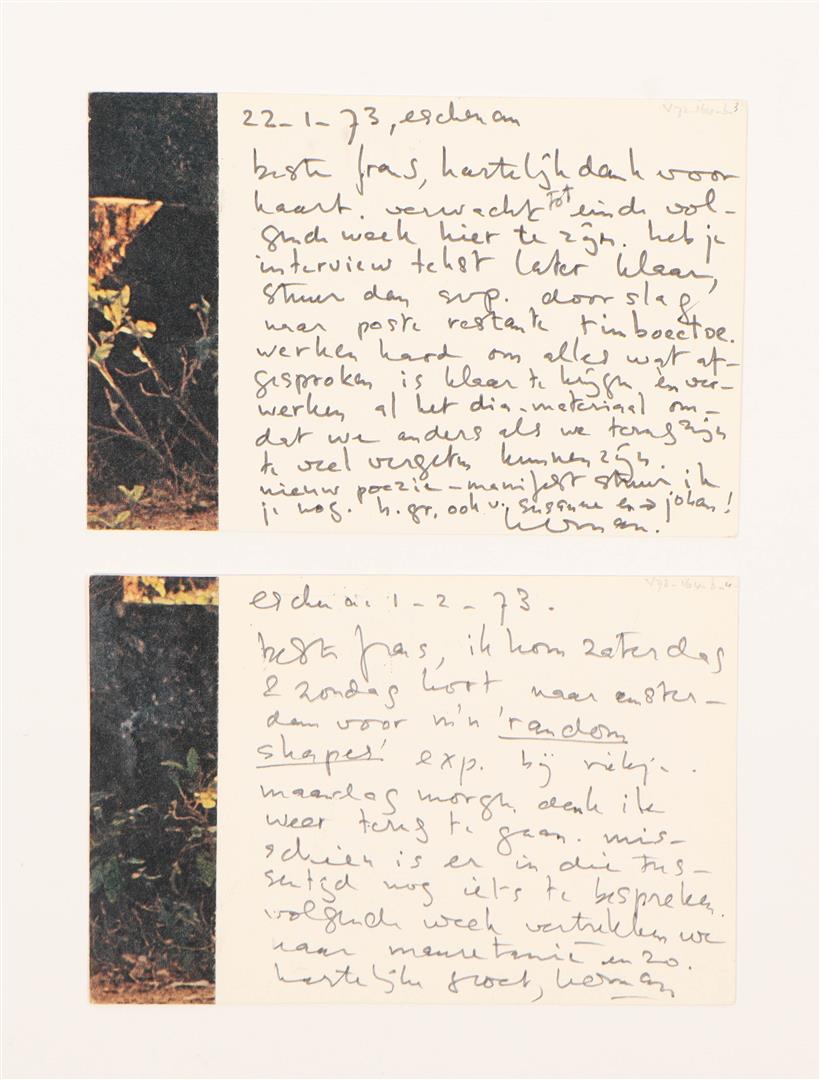 22-1-73, eschenau
beste frans, hartelijk dank voor
kaart. verwacht tot einde vol-
gende week hier te zijn. heb je
interview tekst later klaar,
stuur dan svp. doorslag
naar poste restante timboectoe.
werken hard om alles wat af-
gesproken is klaar te krijgen èn ver-
werken al het dia-materiaal om-
dat we anders als we terug zijn
te veel vergeten kunnen zijn.
nieuw poezie-manifest stuur ik
je nog. h. gr. ook v. susanne en → johan!
herman.
eschenau 1-2-73.
beste frans, ik kom zaterdag
& zondag kort naar amster-
dam voor m'n 'random
shapes' exp. bij riekje.
maandag morgen denk ik
weer terug te gaan. mis-
schien is er in die tus-
sentijd nog iets te bespreken.
volgende week vertrekken we
naar mauretanië en zo.
hartelijke groet, herman